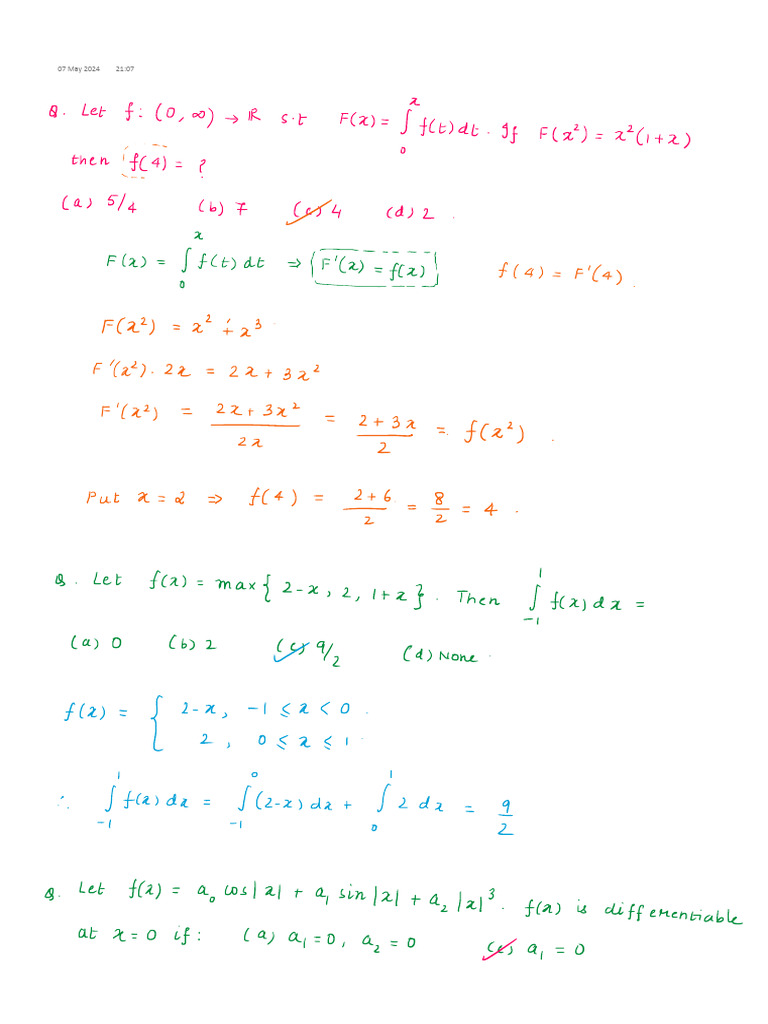 07 May 2024 21:07
Q. Let f: (0, ∞) → ℝ s.t F(x) = ∫₀ˣ f(t) dt. If F(x²) = x²(1+x)
then f(4) = ?
(a) 5/4 (b) 7 (c) 4 (d) 2.
F(x) = ∫₀ˣ f(t) dt ⇒ F'(x) = f(x) f(4) = F'(4).
F(x²) = x² + x³
F'(x²). 2x = 2x + 3x²
F'(x²) = (2x + 3x²)/2x = (2 + 3x)/2 = f(x²).
Put x = 2 ⇒ f(4) = (2+6)/2 = 8/2 = 4.
Q. Let f(x) = max{ 2-x, 2, 1+x }. Then ∫₋₁¹ f(x) dx =
(a) 0 (b) 2 (c) 9/2 (d) None.
f(x) = { 2-x, -1 ≤ x < 0.
2, 0 ≤ x ≤ 1.
∴ ∫₋₁¹ f(x) dx = ∫₋₁⁰ (2-x) dx + ∫₀¹ 2 dx = 9/2
Q. Let f(x) = a₀ cos|x| + a₁ sin|x| + a₂ |x|³. f(x) is differentiable
at x = 0 if: (a) a₁ = 0, a₂ = 0 (c) a₁ = 0